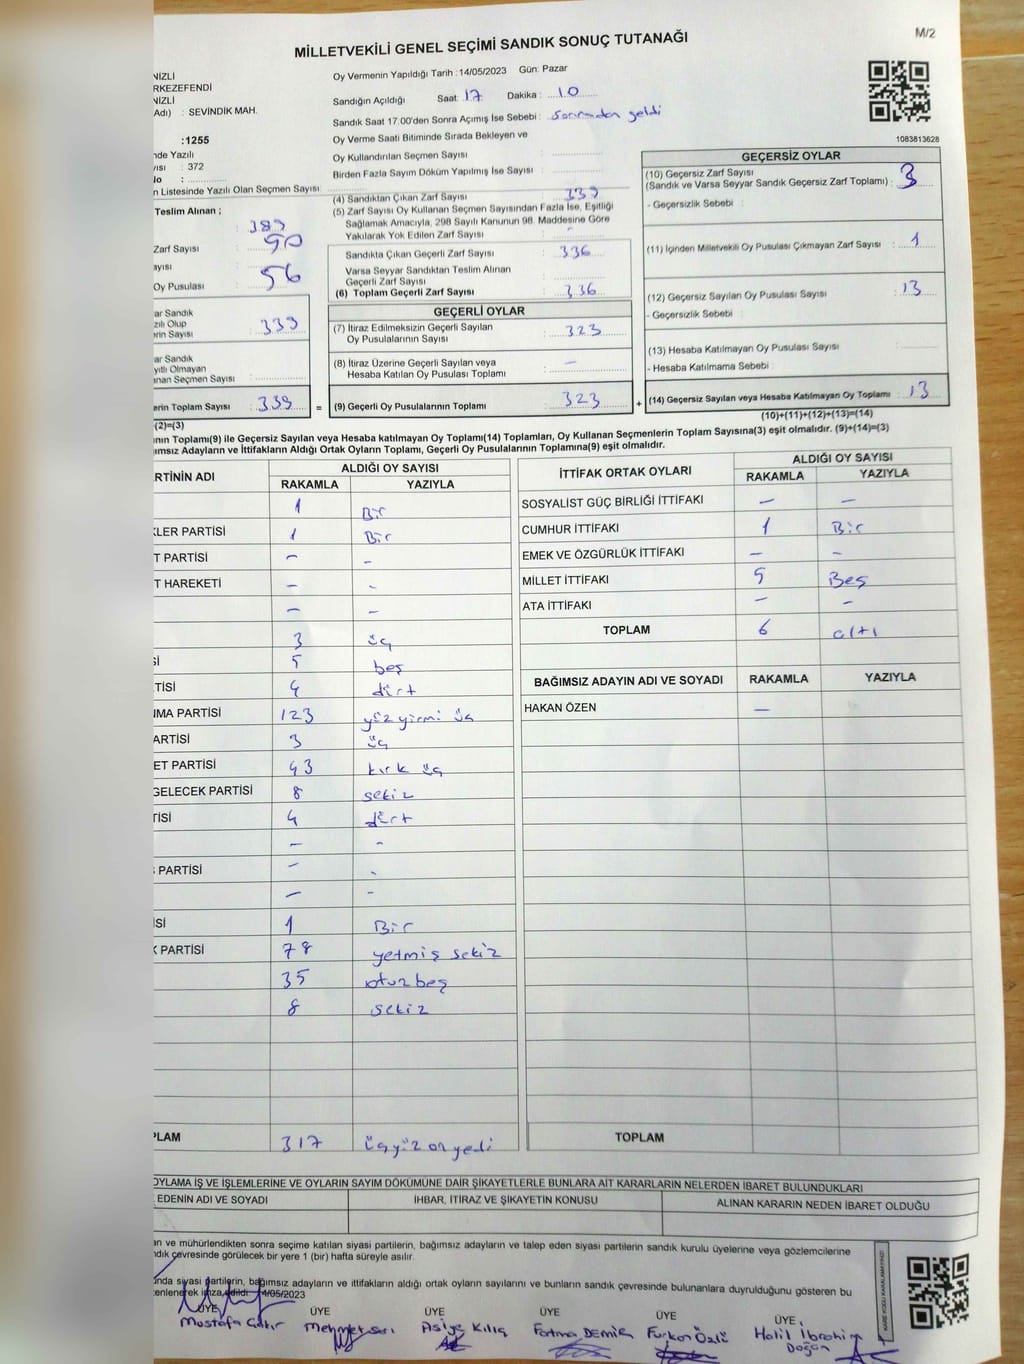 M/2
MİLLETVEKİLİ GENEL SEÇİMİ SANDIK SONUÇ TUTANAĞI
NİZLİ
RKEZEFENDİ
NİZLİ
Adı) : SEVİNDİK MAH.
:1255
nde Yazılı
ısı : 372
lo :
n Listesinde Yazılı Olan Seçmen Sayısı:
Oy Vermenin Yapıldığı Tarih :14/05/2023 Gün: Pazar
Sandığın Açıldığı Saat: 17 Dakika : 10
Sandık Saat 17.00'den Sonra Açımış İse Sebebi : Sonradan geldi
Oy Verme Saati Bitiminde Sırada Bekleyen ve
Oy Kullandırılan Seçmen Sayısı :
Birden Fazla Sayım Döküm Yapılmış İse Sayısı :
1083813628
Teslim Alınan ;
: 389
Zarf Sayısı : 90
ayısı
Oy Pusulası : 56
ar Sandık
zılı Olup
erin Sayısı : 339
ar Sandık
yıtlı Olmayan
anan Seçmen Sayısı :
erin Toplam Sayısı : 339 =
(2)=(3)
(4) Sandıktan Çıkan Zarf Sayısı : 339
(5) Zarf Sayısı Oy Kullanan Seçmen Sayısından Fazla İse, Eşitliği
Sağlamak Amacıyla, 298 Sayılı Kanunun 98. Maddesine Göre
Yakılarak Yok Edilen Zarf Sayısı : -
Sandıkta Çıkan Geçerli Zarf Sayısı : 336
Varsa Seyyar Sandıktan Teslim Alınan
Geçerli Zarf Sayısı :
(6) Toplam Geçerli Zarf Sayısı : 336
GEÇERLİ OYLAR
(7) İtiraz Edilmeksizin Geçerli Sayılan
Oy Pusulalarının Sayısı : 323
(8) İtiraz Üzerine Geçerli Sayılan veya
Hesaba Katılan Oy Pusulası Toplamı : -
(9) Geçerli Oy Pusulalarının Toplamı : 323 +
GEÇERSİZ OYLAR
(10) Geçersiz Zarf Sayısı
(Sandık ve Varsa Seyyar Sandık Geçersiz Zarf Toplamı) : 3
- Geçersizlik Sebebi :
(11) İçinden Milletvekili Oy Pusulası Çıkmayan Zarf Sayısı : 1
(12) Geçersiz Sayılan Oy Pusulası Sayısı : 13
- Geçersizlik Sebebi :
(13) Hesaba Katılmayan Oy Pusulası Sayısı :
- Hesaba Katılmama Sebebi :
(14) Geçersiz Sayılan veya Hesaba Katılmayan Oy Toplamı : 13
(10)+(11)+(12)+(13)=(14)
nın Toplamı(9) ile Geçersiz Sayılan veya Hesaba katılmayan Oy Toplamı(14) Toplamları, Oy Kullanan Seçmenlerin Toplam Sayısına(3) eşit olmalıdır. (9)+(14)=(3)
ımsız Adayların ve İttifakların Aldığı Ortak Oyların Toplamı, Geçerli Oy Pusulalarının Toplamına(9) eşit olmalıdır.
RTİNİN ADI ALDIĞI OY SAYISI
RAKAMLA YAZIYLA
1 Bir
KLER PARTİSİ 1 Bir
T PARTİSİ - -
T HAREKETİ - -
- -
3 üç
Sİ 5 beş
TİSİ 4 dört
NMA PARTİSİ 123 yüz yirmi üç
ARTİSİ 3 üç
ET PARTİSİ 43 kırk üç
GELECEK PARTİSİ 8 sekiz
TİSİ 4 dört
- -
PARTİSİ - -
- -
İSİ 1 Bir
K PARTİSİ 78 yetmiş sekiz
35 otuz beş
8 sekiz
PLAM 317 üçyüz on yedi
İTTİFAK ORTAK OYLARI ALDIĞI OY SAYISI
RAKAMLA YAZIYLA
SOSYALİST GÜÇ BİRLİĞİ İTTİFAKI - -
CUMHUR İTTİFAKI 1 Bir
EMEK VE ÖZGÜRLÜK İTTİFAKI - -
MİLLET İTTİFAKI 5 Beş
ATA İTTİFAKI - -
TOPLAM 6 altı
BAĞIMSIZ ADAYIN ADI VE SOYADI RAKAMLA YAZIYLA
HAKAN ÖZEN -
TOPLAM
OYLAMA İŞ VE İŞLEMLERİNE VE OYLARIN SAYIM DÖKÜMÜNE DAİR ŞİKAYETLERLE BUNLARA AİT KARARLARIN NELERDEN İBARET BULUNDUKLARI
EDENİN ADI VE SOYADI İHBAR, İTİRAZ VE ŞİKAYETİN KONUSU ALINAN KARARIN NEDEN İBARET OLDUĞU
an ve mühürlendikten sonra seçime katılan siyasi partilerin, bağımsız adayların ve talep eden siyasi partilerin sandık kurulu üyelerine veya gözlemcilerine
ndık çevresinde görülecek bir yere 1 (bir) hafta süreyle asılır.
nda siyasi partilerin, bağımsız adayların ve ittifakların aldığı ortak oyların sayılarını ve bunların sandık çevresinde bulunanlara duyrulduğunu gösteren bu
zenlenerek imza edildi. 14/05/2023
ÜYE ÜYE ÜYE ÜYE ÜYE ÜYE
Mustafa Mehmet Sarı Asiye Kılıç Fatma DEMİR Furkan Özlü Halil İbrahim
Doğan
KARE KODU KARALAMAYINIZ!